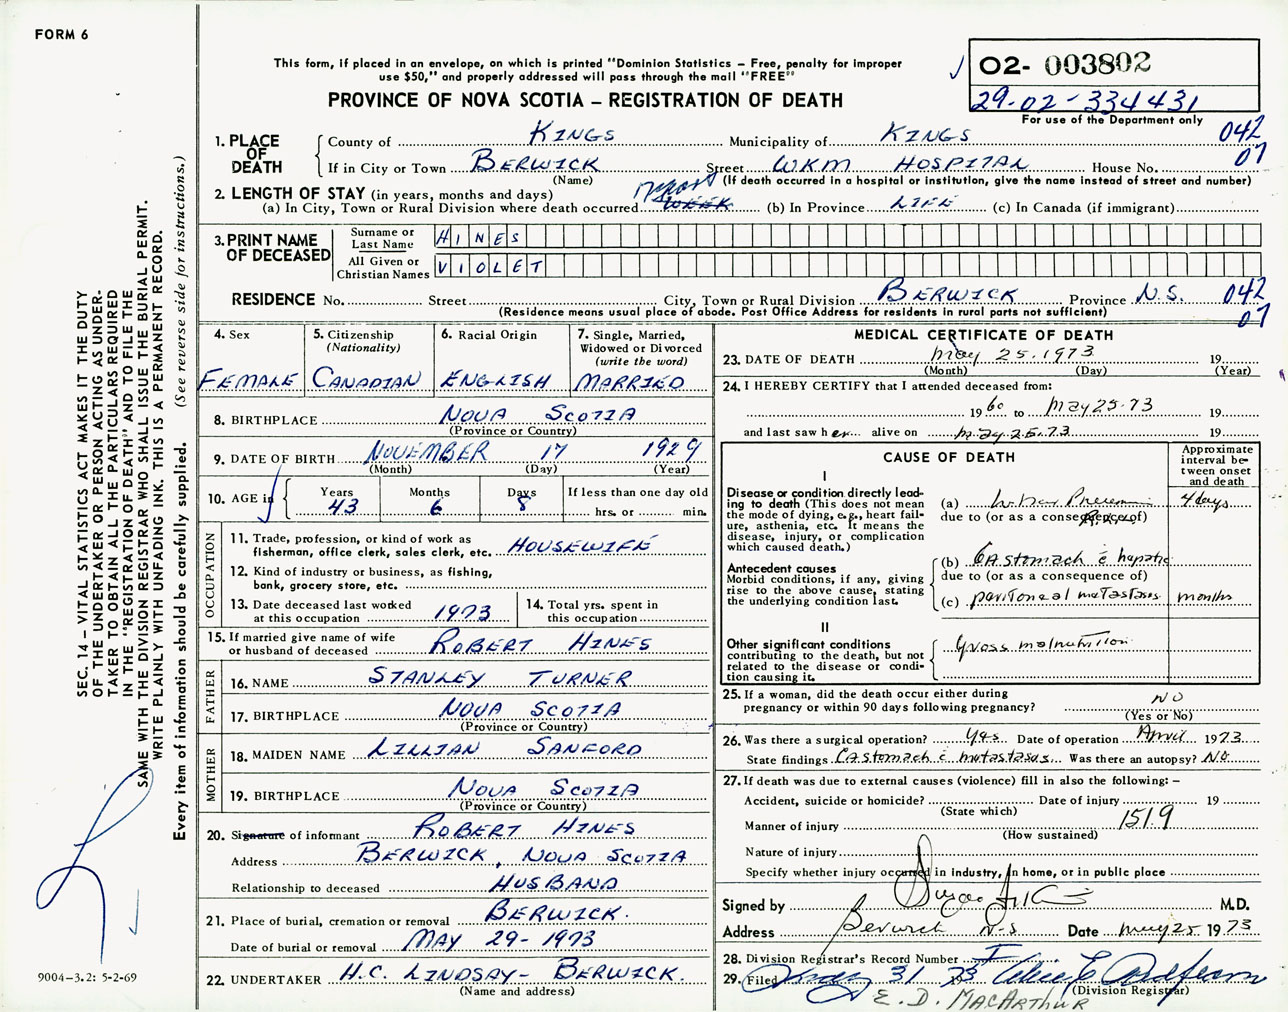 FORM 6
This form, if placed in an envelope, on which is printed "Dominion Statistics – Free, penalty for improper
use $50," and properly addressed will pass through the mail "FREE"
PROVINCE OF NOVA SCOTIA – REGISTRATION OF DEATH
02- 003802
29-02-334431
For use of the Department only
042
07
1. PLACE OF DEATH
County of KINGS Municipality of KINGS
If in City or Town BERWICK Street WKM HOSPITAL House No.
(Name) (If death occurred in a hospital or institution, give the name instead of street and number)
2. LENGTH OF STAY (in years, months and days)
(a) In City, Town or Rural Division where death occurred WEEK (b) In Province LIFE (c) In Canada (if immigrant)
3. PRINT NAME OF DECEASED
Surname or Last Name HINES
All Given or Christian Names VIOLET
RESIDENCE No. Street City, Town or Rural Division BERWICK Province N.S. 042
07
(Residence means usual place of abode. Post Office Address for residents in rural parts not sufficient)
4. Sex
FEMALE
5. Citizenship
(Nationality)
CANADIAN
6. Racial Origin
ENGLISH
7. Single, Married,
Widowed or Divorced
(write the word)
MARRIED
8. BIRTHPLACE NOVA SCOTIA
(Province or Country)
9. DATE OF BIRTH NOVEMBER 17 1929
(Month) (Day) (Year)
10. AGE in
Years 43
Months 6
Days 8
If less than one day old
hrs. or min.
OCCUPATION
11. Trade, profession, or kind of work as
fisherman, office clerk, sales clerk, etc. HOUSEWIFE
12. Kind of industry or business, as fishing,
bank, grocery store, etc.
13. Date deceased last worked
at this occupation 1973
14. Total yrs. spent in
this occupation
15. If married give name of wife
or husband of deceased ROBERT HINES
FATHER
16. NAME STANLEY TURNER
17. BIRTHPLACE NOVA SCOTIA
(Province or Country)
MOTHER
18. MAIDEN NAME LILLIAN SANFORD
19. BIRTHPLACE NOVA SCOTIA
(Province or Country)
20. Signature of informant ROBERT HINES
Address BERWICK, NOVA SCOTIA
Relationship to deceased HUSBAND
21. Place of burial, cremation or removal BERWICK.
Date of burial or removal MAY 29-1973
22. UNDERTAKER H.C. LINDSAY- BERWICK.
(Name and address)
MEDICAL CERTIFICATE OF DEATH
23. DATE OF DEATH May 25. 1973 19
(Month) (Day) (Year)
24. I HEREBY CERTIFY that I attended deceased from:
1960 to May 25.73 19
and last saw her alive on May 25.73 19
CAUSE OF DEATH
Approximate
interval be-
tween onset
and death
I
Disease or condition directly lead-
ing to death (This does not mean
the mode of dying, e.g., heart fail-
ure, asthenia, etc. It means the
disease, injury, or complication
which caused death.)
(a) 4 days
due to (or as a consequence of)
Antecedent causes
Morbid conditions, if any, giving
rise to the above cause, stating
the underlying condition last.
(b) CA stomach c̄ hepatic
due to (or as a consequence of)
(c) peritoneal metastases months
II
Other significant conditions
contributing to the death, but not
related to the disease or condi-
tion causing it.
Gross malnutrition
25. If a woman, did the death occur either during
pregnancy or within 90 days following pregnancy? NO
(Yes or No)
26. Was there a surgical operation? Yes Date of operation April 1973
State findings CA stomach c̄ metastases. Was there an autopsy? NO
27. If death was due to external causes (violence) fill in also the following: –
Accident, suicide or homicide? Date of injury 19
(State which)
Manner of injury 151.9
(How sustained)
Nature of injury
Specify whether injury occurred in industry, in home, or in public place
Signed by M.D.
Address Berwick N-S Date May 25 1973
28. Division Registrar's Record Number
29. Filed May 31 73
(Division Registrar)
E. D. MACARTHUR
SEC. 14 – VITAL STATISTICS ACT MAKES IT THE DUTY
OF THE UNDERTAKER OR PERSON ACTING AS UNDER-
TAKER TO OBTAIN ALL THE PARTICULARS REQUIRED
IN THE "REGISTRATION OF DEATH" AND TO FILE THE
SAME WITH THE DIVISION REGISTRAR WHO SHALL ISSUE THE BURIAL PERMIT.
WRITE PLAINLY WITH UNFADING INK. THIS IS A PERMANENT RECORD.
Every item of information should be carefully supplied. (See reverse side for instructions.)
9004–3.2: 5-2-69